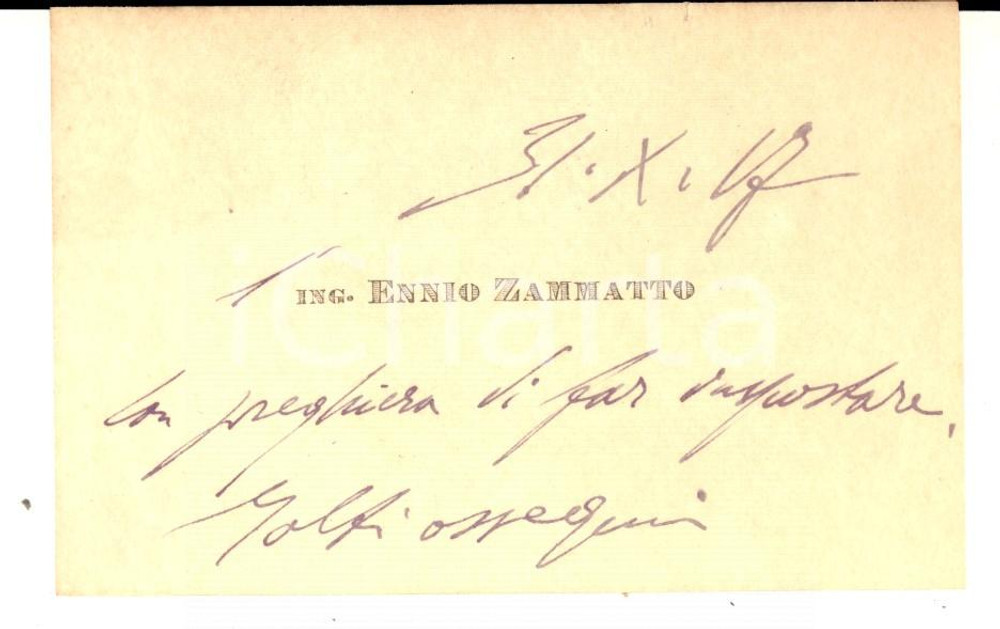 31. X. 17
l' ING. ENNIO ZAMMATTO
con preghiera di far impostare.
Molti ossequi
iCharta